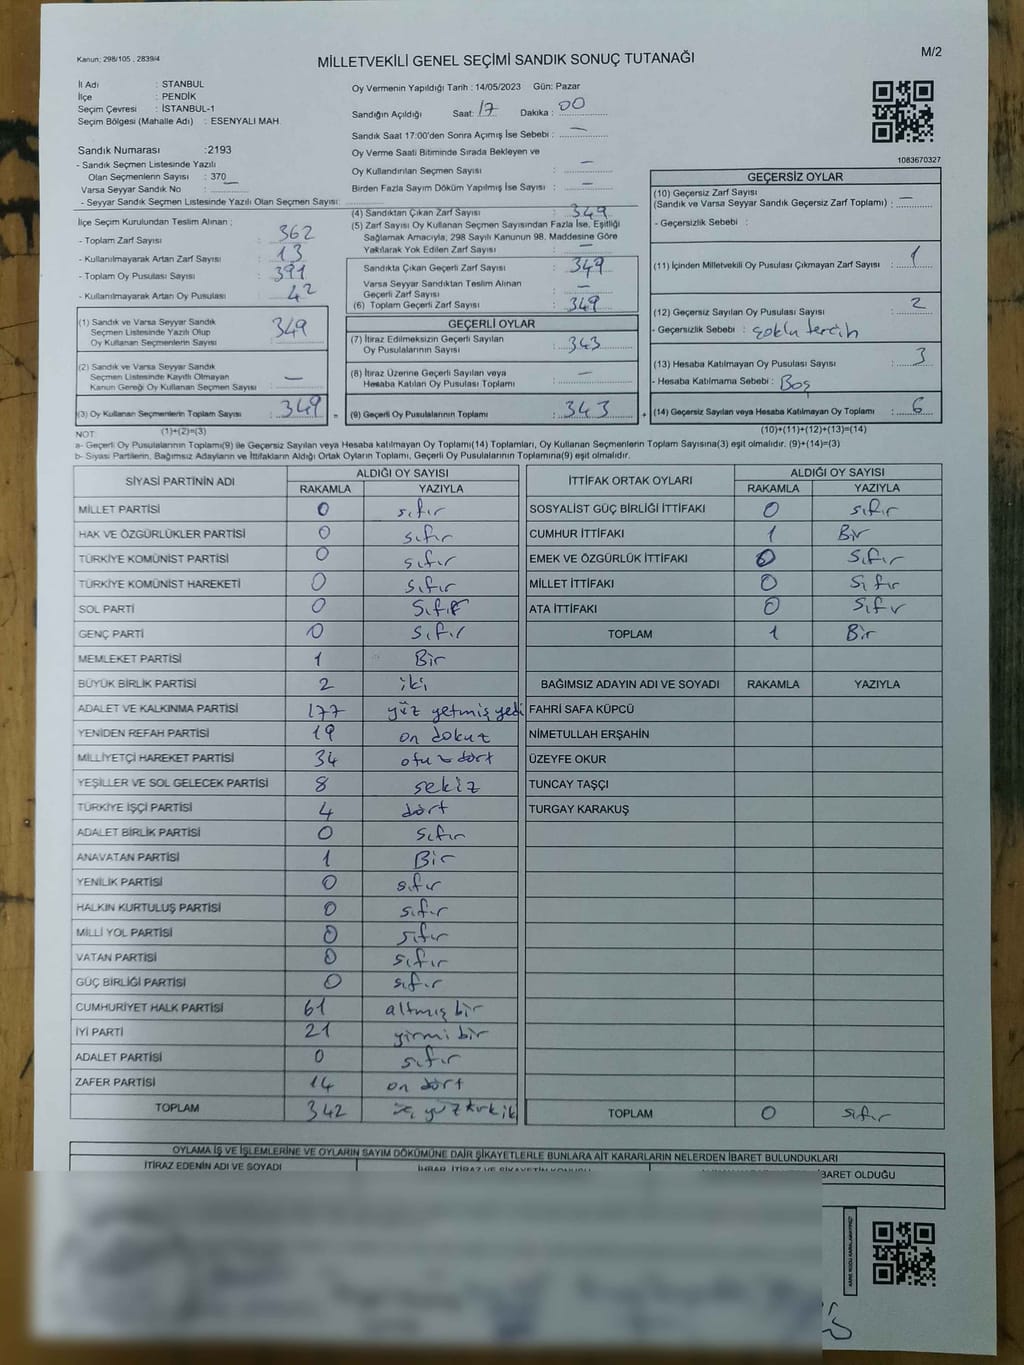 Kanun; 298/105 , 2839/4
MİLLETVEKİLİ GENEL SEÇİMİ SANDIK SONUÇ TUTANAĞI
M/2
İl Adı : STANBUL
İlçe : PENDİK
Seçim Çevresi : İSTANBUL-1
Seçim Bölgesi (Mahalle Adı) : ESENYALI MAH.
Sandık Numarası :2193
- Sandık Seçmen Listesinde Yazılı
Olan Seçmenlerin Sayısı : 370
Varsa Seyyar Sandık No : —
- Seyyar Sandık Seçmen Listesinde Yazılı Olan Seçmen Sayısı:
Oy Vermenin Yapıldığı Tarih : 14/05/2023 Gün: Pazar
Sandığın Açıldığı Saat: 17 Dakika: 00
Sandık Saat 17:00'den Sonra Açımış İse Sebebi : —
Oy Verme Saati Bitiminde Sırada Bekleyen ve
Oy Kullandırılan Seçmen Sayısı : —
Birden Fazla Sayım Döküm Yapılmış İse Sayısı : —
1083670327
İlçe Seçim Kurulundan Teslim Alınan ;
- Toplam Zarf Sayısı : 362
- Kullanılmayarak Artan Zarf Sayısı : 13
- Toplam Oy Pusulası Sayısı : 391
- Kullanılmayarak Artan Oy Pusulası : 42
(1) Sandık ve Varsa Seyyar Sandık
Seçmen Listesinde Yazılı Olup
Oy Kullanan Seçmenlerin Sayısı : 349
(2) Sandık ve Varsa Seyyar Sandık
Seçmen Listesinde Kayıtlı Olmayan
Kanun Gereği Oy Kullanan Seçmen Sayısı : —
(3) Oy Kullanan Seçmenlerin Toplam Sayısı : 349
(1)+(2)=(3)
(4) Sandıktan Çıkan Zarf Sayısı : 349
(5) Zarf Sayısı Oy Kullanan Seçmen Sayısından Fazla İse, Eşitliği
Sağlamak Amacıyla, 298 Sayılı Kanunun 98. Maddesine Göre
Yakılarak Yok Edilen Zarf Sayısı : —
Sandıkta Çıkan Geçerli Zarf Sayısı : 349
Varsa Seyyar Sandıktan Teslim Alınan
Geçerli Zarf Sayısı : —
(6) Toplam Geçerli Zarf Sayısı : 349
GEÇERLİ OYLAR
(7) İtiraz Edilmeksizin Geçerli Sayılan
Oy Pusulalarının Sayısı : 343
(8) İtiraz Üzerine Geçerli Sayılan veya
Hesaba Katılan Oy Pusulası Toplamı : —
(9) Geçerli Oy Pusulalarının Toplamı : 343
GEÇERSİZ OYLAR
(10) Geçersiz Zarf Sayısı
(Sandık ve Varsa Seyyar Sandık Geçersiz Zarf Toplamı) : —
- Geçersizlik Sebebi :
(11) İçinden Milletvekili Oy Pusulası Çıkmayan Zarf Sayısı : 1
(12) Geçersiz Sayılan Oy Pusulası Sayısı : 2
- Geçersizlik Sebebi : çoklu tercih
(13) Hesaba Katılmayan Oy Pusulası Sayısı : 3
- Hesaba Katılmama Sebebi : Boş
(14) Geçersiz Sayılan veya Hesaba Katılmayan Oy Toplamı : 6
(10)+(11)+(12)+(13)=(14)
NOT
a- Geçerli Oy Pusulalarının Toplamı(9) ile Geçersiz Sayılan veya Hesaba katılmayan Oy Toplamı(14) Toplamları, Oy Kullanan Seçmenlerin Toplam Sayısına(3) eşit olmalıdır. (9)+(14)=(3)
b- Siyasi Partilerin, Bağımsız Adayların ve İttifakların Aldığı Ortak Oyların Toplamı, Geçerli Oy Pusulalarının Toplamına(9) eşit olmalıdır.
SİYASİ PARTİNİN ADI ALDIĞI OY SAYISI
RAKAMLA YAZIYLA
MİLLET PARTİSİ 0 sıfır
HAK VE ÖZGÜRLÜKLER PARTİSİ 0 sıfır
TÜRKİYE KOMÜNİST PARTİSİ 0 sıfır
TÜRKİYE KOMÜNİST HAREKETİ 0 sıfır
SOL PARTİ 0 Sıfır
GENÇ PARTİ 0 sıfır
MEMLEKET PARTİSİ 1 Bir
BÜYÜK BİRLİK PARTİSİ 2 iki
ADALET VE KALKINMA PARTİSİ 177 yüz yetmiş yedi
YENİDEN REFAH PARTİSİ 19 on dokuz
MİLLİYETÇİ HAREKET PARTİSİ 34 otuz dört
YEŞİLLER VE SOL GELECEK PARTİSİ 8 sekiz
TÜRKİYE İŞÇİ PARTİSİ 4 dört
ADALET BİRLİK PARTİSİ 0 sıfır
ANAVATAN PARTİSİ 1 Bir
YENİLİK PARTİSİ 0 sıfır
HALKIN KURTULUŞ PARTİSİ 0 sıfır
MİLLİ YOL PARTİSİ 0 sıfır
VATAN PARTİSİ 0 sıfır
GÜÇ BİRLİĞİ PARTİSİ 0 sıfır
CUMHURİYET HALK PARTİSİ 61 altmış bir
İYİ PARTİ 21 yirmi bir
ADALET PARTİSİ 0 sıfır
ZAFER PARTİSİ 14 on dört
TOPLAM 342
İTTİFAK ORTAK OYLARI ALDIĞI OY SAYISI
RAKAMLA YAZIYLA
SOSYALİST GÜÇ BİRLİĞİ İTTİFAKI 0 sıfır
CUMHUR İTTİFAKI 1 Bir
EMEK VE ÖZGÜRLÜK İTTİFAKI 0 sıfır
MİLLET İTTİFAKI 0 sıfır
ATA İTTİFAKI 0 sıfır
TOPLAM 1 Bir
BAĞIMSIZ ADAYIN ADI VE SOYADI RAKAMLA YAZIYLA
FAHRİ SAFA KÜPCÜ
NİMETULLAH ERŞAHİN
ÜZEYFE OKUR
TUNCAY TAŞÇI
TURGAY KARAKUŞ
TOPLAM 0 sıfır
OYLAMA İŞ VE İŞLEMLERİNE VE OYLARIN SAYIM DÖKÜMÜNE DAİR ŞİKAYETLERLE BUNLARA AİT KARARLARIN NELERDEN İBARET BULUNDUKLARI
İTİRAZ EDENİN ADI VE SOYADI
İBARET OLDUĞU